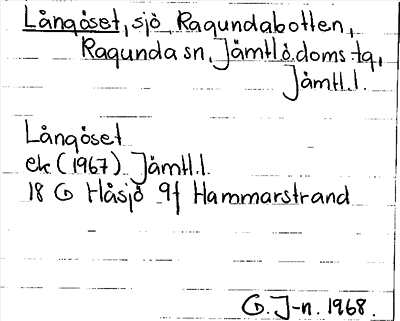 Långöset, sjö Ragundabotten,
Ragunda sn, Jämtl.doms.tg,
Jämtl.l.
Långöset
ek (1967) Jämtl.l.
18 G Håsjö 9f Hammarstrand
G. J-n. 1968.